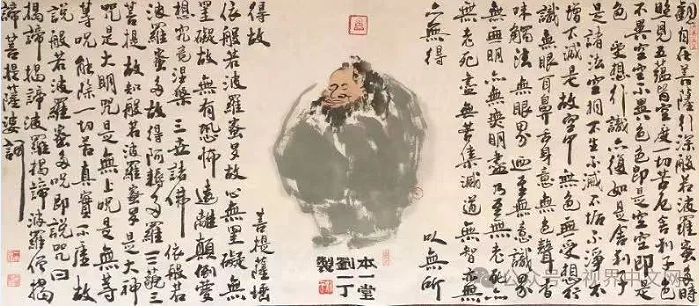 觀自在菩薩行深般若波羅蜜多時
照見五蘊皆空度一切苦厄舍利子色
不異空空不異色色即是空空即是
色受想行識亦復如是舍利子
是諸法空相不生不滅不垢不淨不
增不減是故空中無色無受想行
識無眼耳鼻舌身意無色聲香
味觸法無眼界迺至無意識界無無
明亦無無明盡乃至無老死亦
無老死盡無苦集滅道無智
亦無得
以無所
得故
菩提薩埵
依般若波羅蜜多故心無罣礙無
罣礙故無有恐怖遠離顛倒夢
想究竟涅槃三世諸佛依般若
波羅蜜多故得阿耨多羅三藐三
菩提故知般若波羅蜜多是大神
咒是大明咒是無上咒是無等
等咒能除一切苦真實不虛故
說般若波羅蜜多咒即說咒曰
揭諦揭諦波羅揭諦波羅僧揭
諦菩提薩婆訶
本一堂
劉一丁
製
公众号·视界中文网